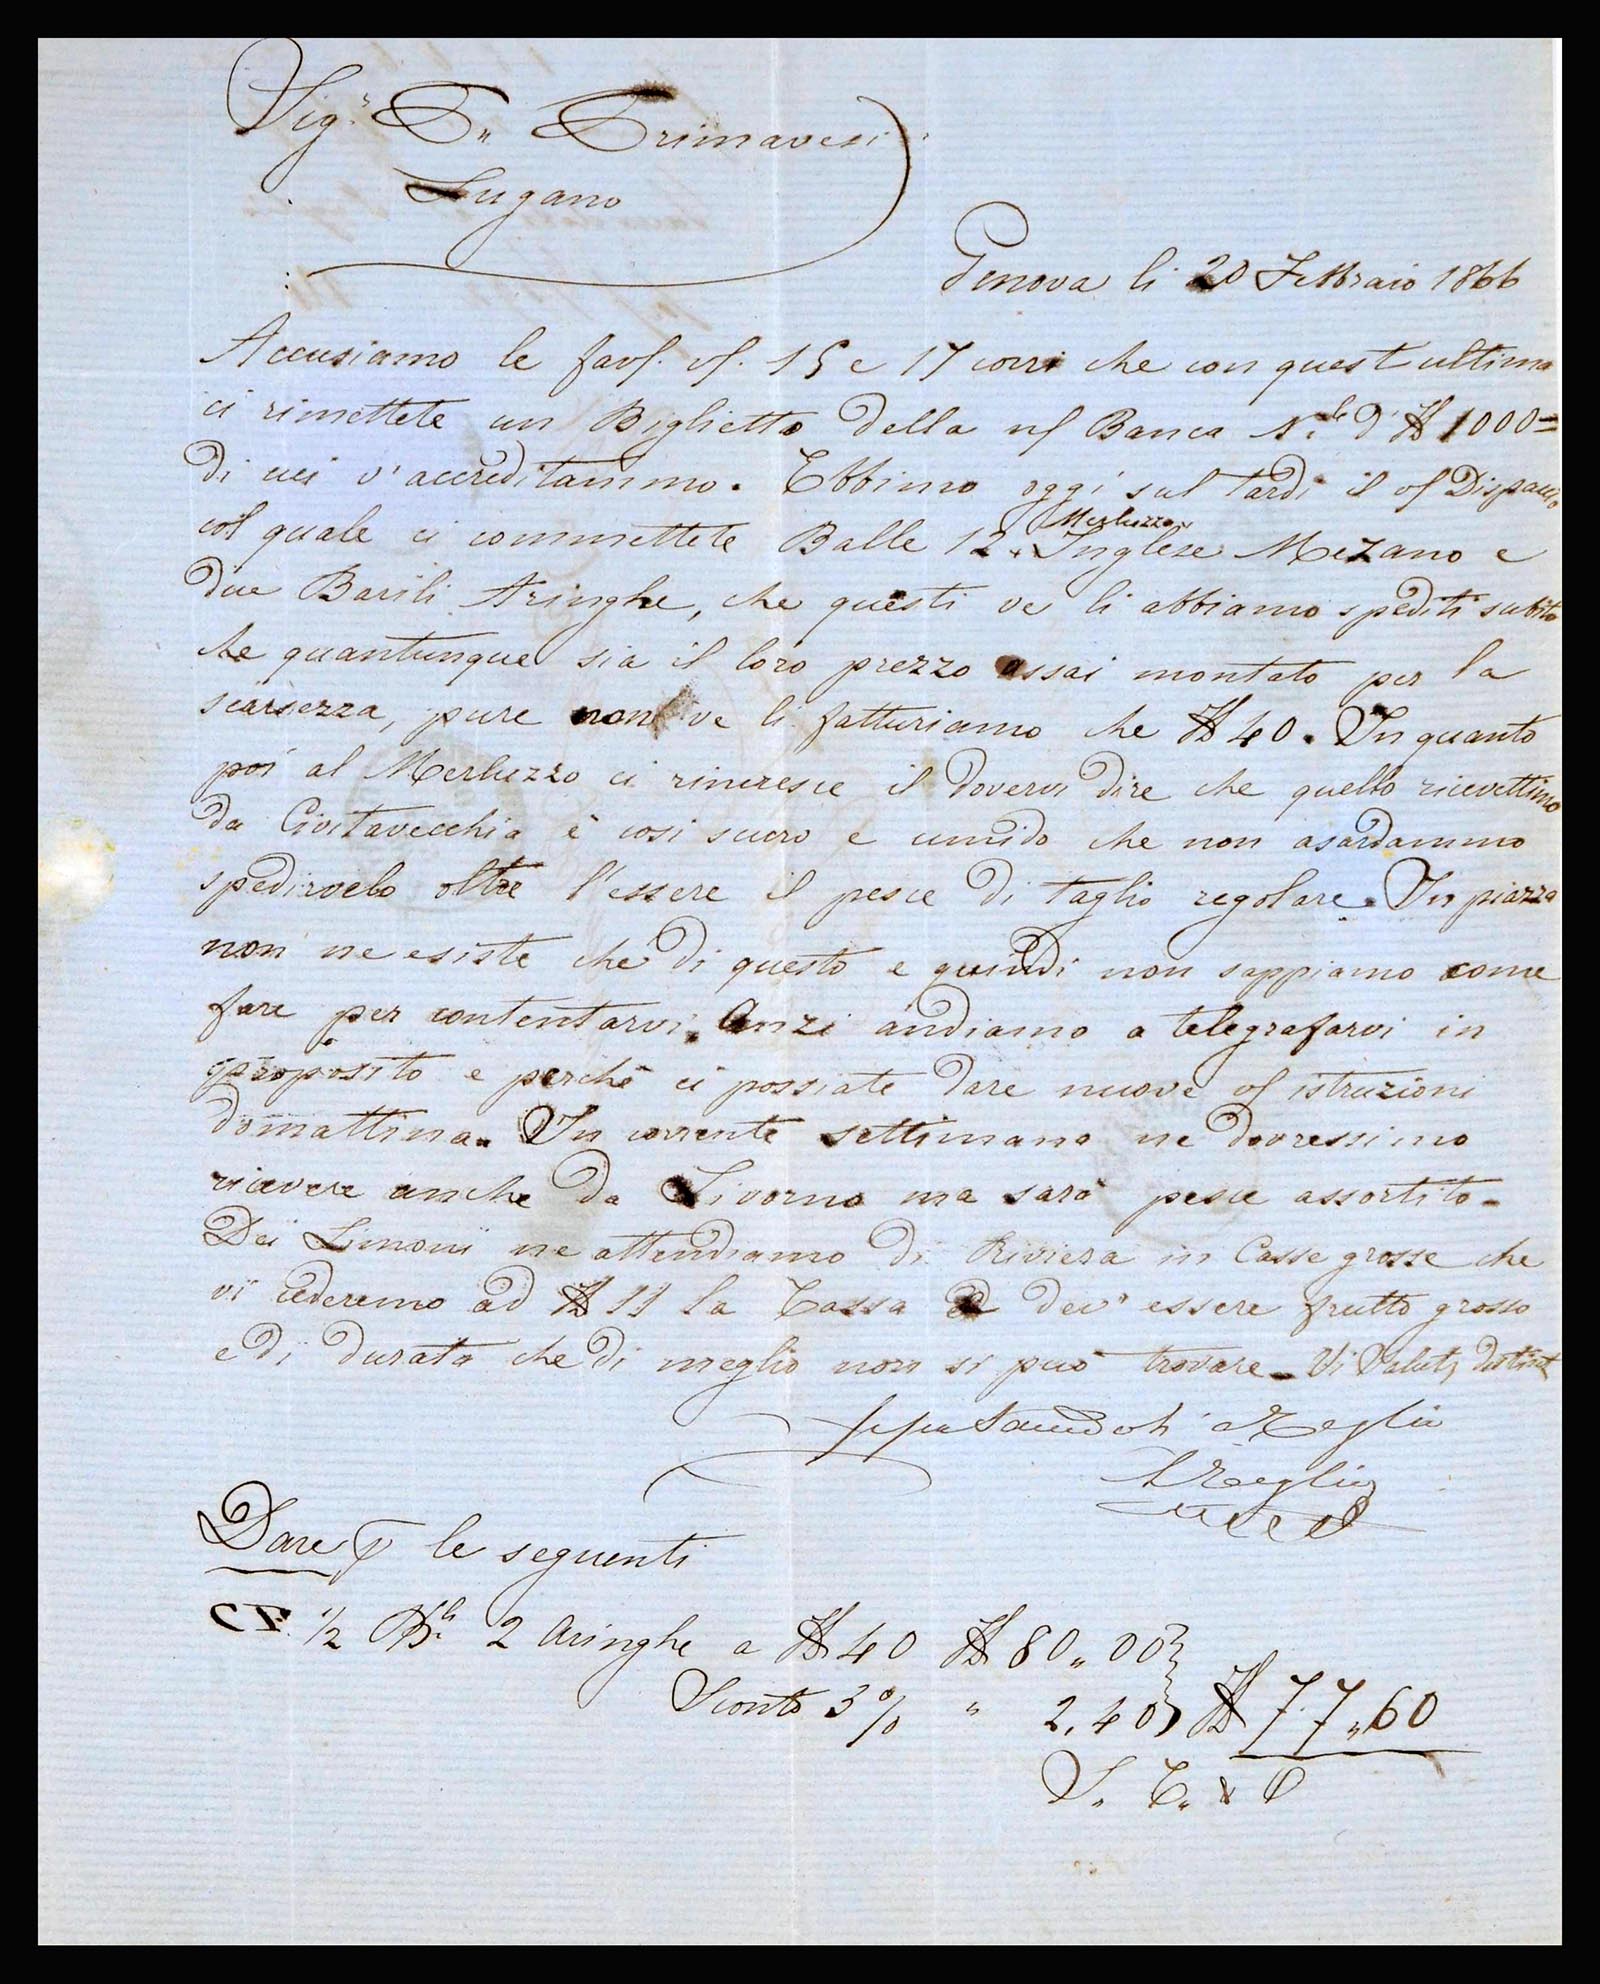 Sigr. Fn Primavesi
Lugano
Genova li 20 Febbraio 1866
Accusiamo le favf. vf. 15 e 17 corri che con quest ultima
ci rimettete un Biglietto della nf Banca Nle d' ₶ 1000=
di cui v'accreditammo. Ebbimo oggi sul tardi il vf Dispaccio
col quale ci commettete Balle 12 Merluzzo Inglese Mezano e
due Barili Aringhe, che questi ve li abbiamo spediti subito
che quantunque sia il loro prezzo assai montato per la
scarsezza, pure non ve li fatturiamo che ₶ 40. In quanto
poi al Merluzzo ci rincresce il dovervi dire che quello ricevettimo
da Civitavecchia è cosi sucro e umido che non asardammo
spedirvelo oltre l'essere il pesce di taglio regolare. In piazza
non ne esiste che di questo e quindi non sappiamo come
fare per contentarvi. Anzi andiamo a telegrafarvi in
proposito e perchè ci possiate dare nuove vf istruzioni
domattina. In corrente settimana ne dovressimo
ricevere anche da Livorno ma sarà pesce assortito.
Dei Limoni ne attendiamo di Riviera in Casse grosse che
vi cederemo ad ₶ 11 la Cassa e dev' essere frutto grosso
e di durata che di meglio non si può trovare. Vi Salut, distint
e Reglio
Reglio
Dare p le seguenti
CP 1/2 Bli 2 Aringhe a ₶ 40 ₶ 80,,00
Sconto 3% " 2,40 ₶ 77,,60
S,, E,, & O